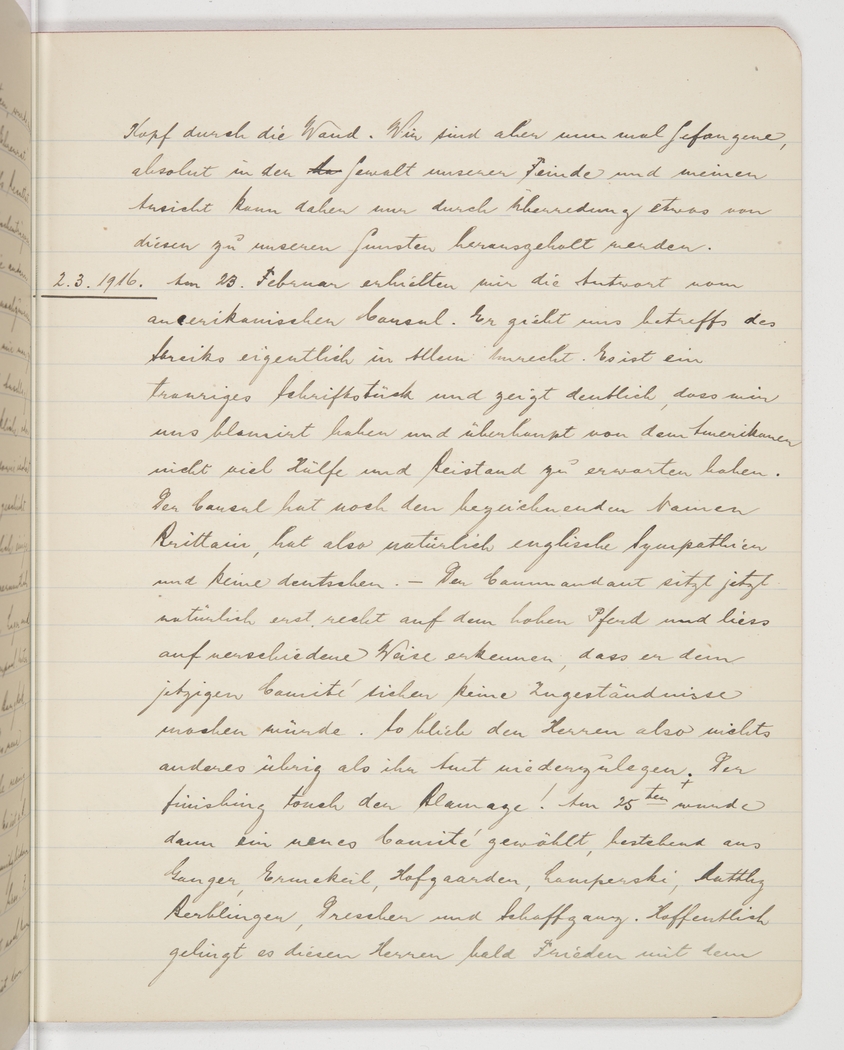 Kopf durch die Wand. Wir sind aber nun mal Gefangene,
absolut in der Gewalt unserer Feinde und meiner
Ansicht kann daher nur durch Überredung etwas von
diesen zu unseren Gunsten herausgeholt werden.
2.3.1916. Am 23. Februar erhielten wir die Antwort vom
amerikanischen Consul. Er giebt uns betreffs des
Streiks eigentlich in Allem Unrecht. Es ist ein
trauriges Schriftstück und zeigt deutlich, dass wir
uns blamirt haben und überhaupt von dem Amerikaner
nicht viel Hülfe und Beistand zu erwarten haben.
Der Consul hat noch den bezeichnenden Namen
Brittain, hat also natürlich englische Sympathien
und keine deutschen. – Der Commandant sitzt jetzt
natürlich erst recht auf dem hohen Pferd und liess
auf verschiedene Weise erkennen, dass er dem
jetzigen Comité sicher keine Zugeständnisse
machen würde. So blieb den Herren also nichts
anderes übrig als ihr Amt niederzulegen. Der
finishing touch der Blamage! Am 25ten wurde
dann ein neues Comité gewählt, bestehend aus
Ermekeil, Hofgaarden, Lamperski,
Berblinger, Drescher und Schaffganz. Hoffentlich
gelingt es diesen Herren bald Frieden mit dem